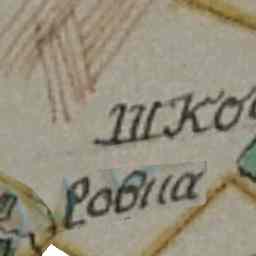 Шко
Ровна